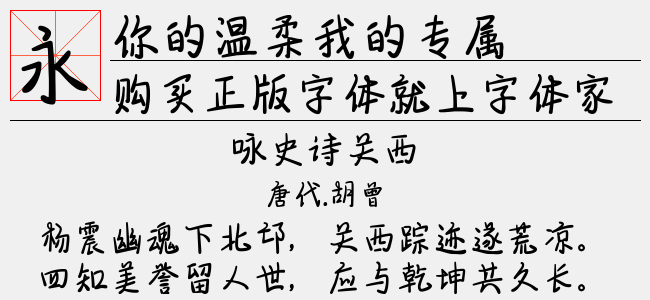 永
你的温柔我的专属
购买正版字体就上字体家
咏史诗关西
唐代.胡曾
杨震幽魂下北邙，关西踪迹遂荒凉。
四知美誉留人世，应与乾坤共久长。